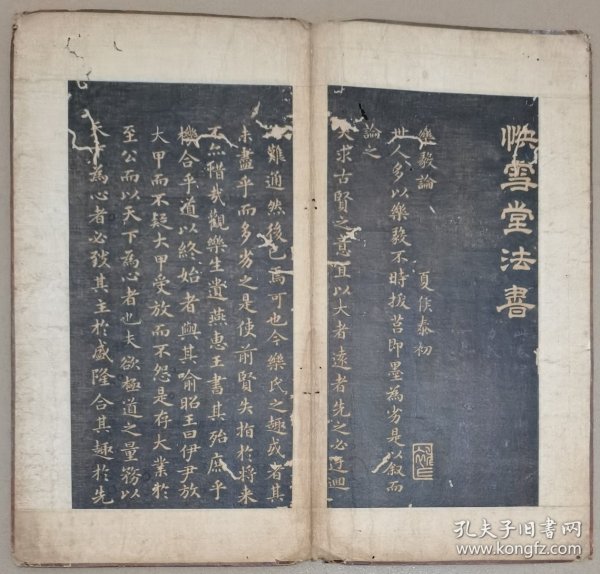 快雪堂法書
樂毅論
夏侯泰初
世人多以樂毅不時拔莒即墨為劣是以叙而
論之
夫求古賢之意宜以大者遠者先之必迂迴
難通然後已焉可也今樂氏之趣或者其
未盡乎而多劣之是使前賢失指於將来
不亦惜哉觀樂生遺燕惠王書其殆庶乎
機合乎道以終始者與其喻昭王曰伊尹放
大甲而不疑大甲受放而不怨是存大業於
至公而以天下為心者也夫欲極道之量務以
天下為心者必致其主於盛隆合其趣於先
孔夫子旧書网
www.kongfz.com